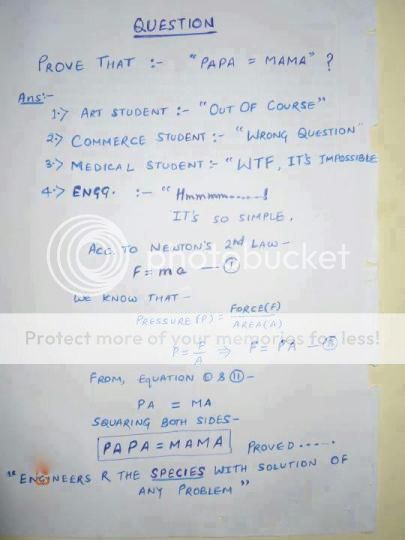 QUESTION
PROVE THAT :- "PAPA = MAMA" ?
Ans:-
1.> ART STUDENT :- "OUT OF COURSE"
2.> COMMERCE STUDENT :- "WRONG QUESTION"
3.> MEDICAL STUDENT :- "WTF, IT'S IMPOSSIBLE
4.> ENGG. :- "Hmmmm.....!
IT'S SO SIMPLE.
ACC. TO NEWTON'S 2nd LAW -
F = ma — (I)
WE KNOW THAT -
PRESSURE (P) = FORCE(F)
AREA(A)
photobucket
Protect more of your memories for less!
P = F/A ⇒ F = PA — (II)
FROM, EQUATION (I) & (II) -
PA = MA
SQUARING BOTH SIDES -
PAPA = MAMA PROVED.....
"ENGINEERS R THE SPECIES WITH SOLUTION OF
ANY PROBLEM"